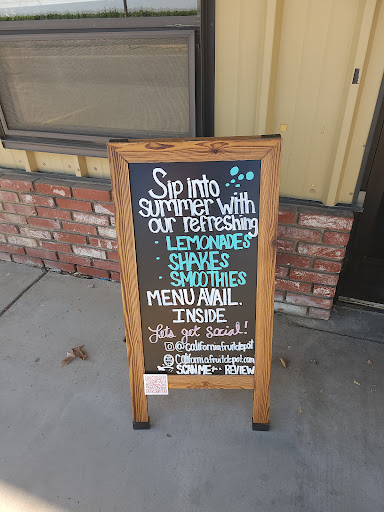 Sip into
summer with
our refreshing
• LEMONADES
• SHAKES
• SMOOTHIES
MENU AVAIL.
INSIDE
Let's get social!
@californiafruitdepot
Californiafruitdepot.com
SCAN ME REVIEW